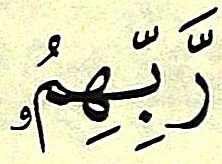 رَّبِّهِمُۥ